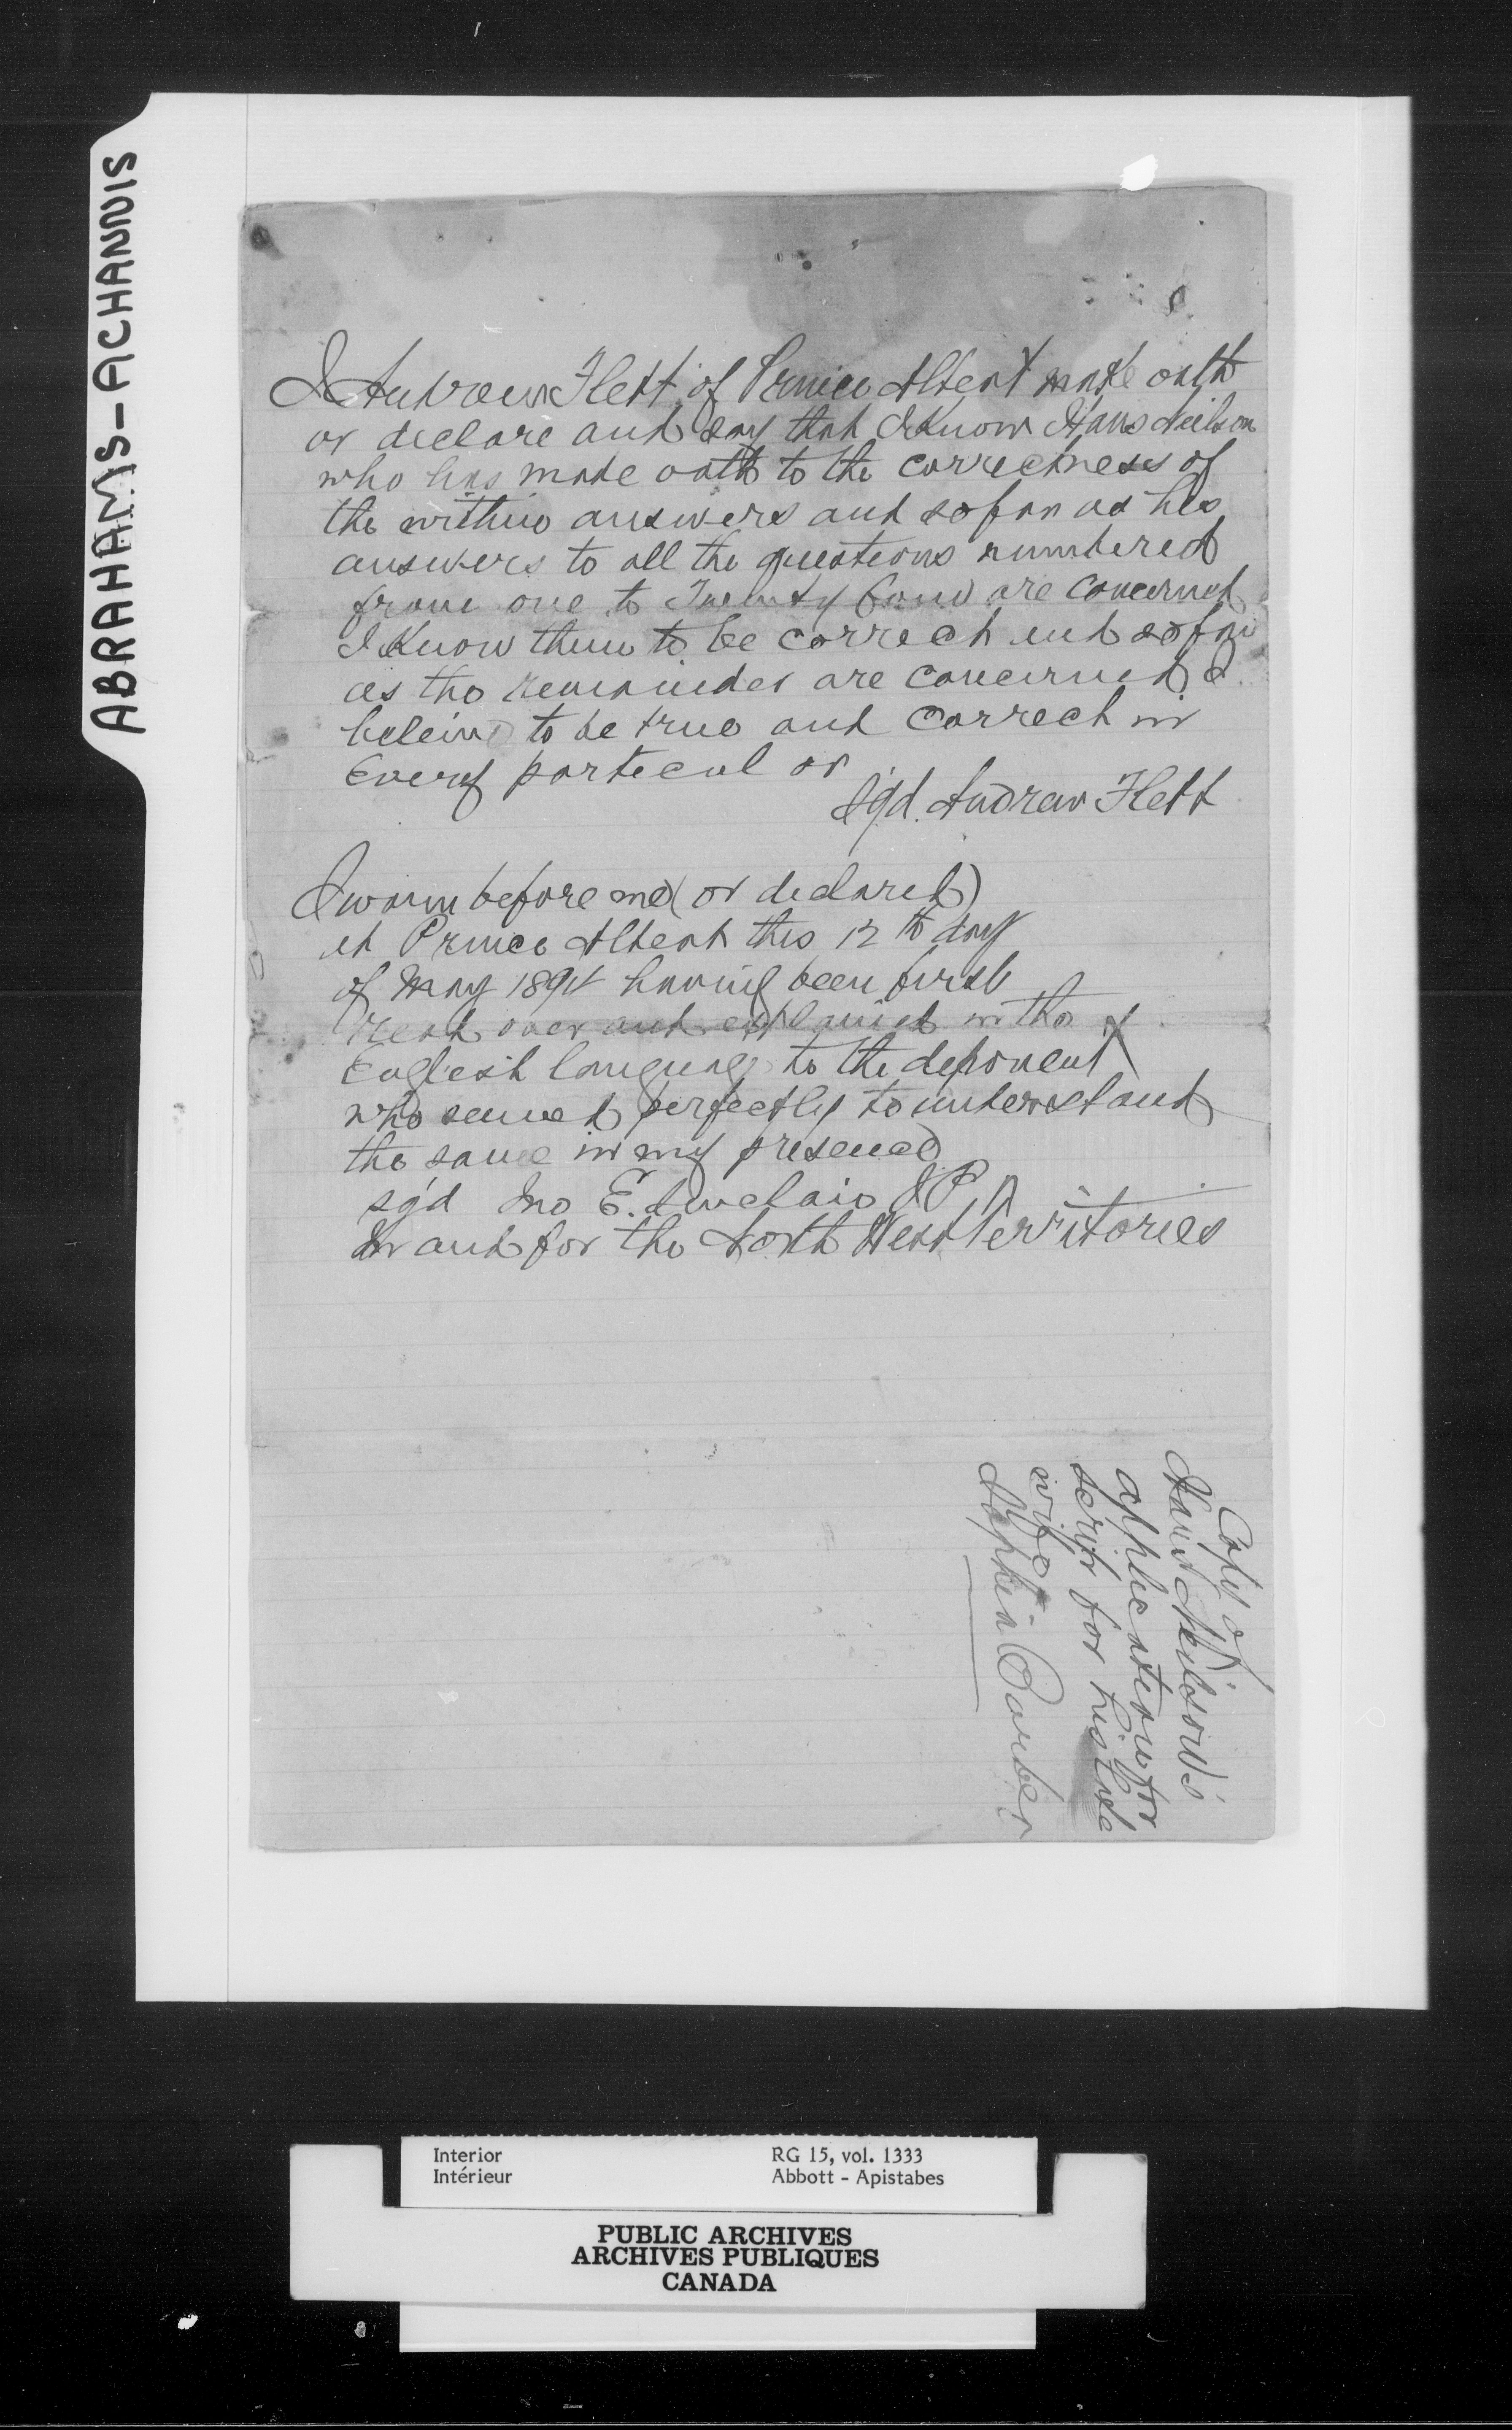 ABRAHAMS-ACHANNIS
I Andrew Flett of Prince Albert make oath
or declare and say that I Know Hans Neilson
who has made oath to the correctness of
the within answers and so far as his
answers to all the questions numbered
from one to Twenty four are concerned
I Know them to be correct and so far
as the remainder are concerned I
beleive to be true and correct in
Every particul ar
Sgd. Andrew Flett
Sworn before me (or declared)
at Prince Albert this 12th day
of May 1894 having been first
read over and explained in the
English language to the deponent
who seemed perfectly to understand
the same in my presence
sgd Jno E. Sinclair J P
In and for the North West Territories
Copy of
Hans Neilson's
application for
scrip for his
wife
Sophia Barber
Interior
Intérieur
RG 15, vol. 1333
Abbott - Apistabes
PUBLIC ARCHIVES
ARCHIVES PUBLIQUES
CANADA